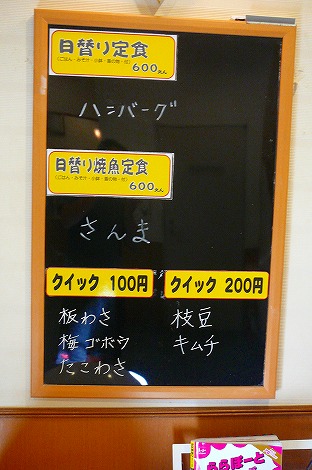 日替り定食
(ごはん・みそ汁・小鉢・香の物・付)
600えん
ハンバーグ
日替り焼魚定食
(ごはん・みそ汁・小鉢・香の物・付)
600えん
さんま
クイック 100円
板わさ
梅ゴボウ
たこわさ
クイック 200円
枝豆
キムチ